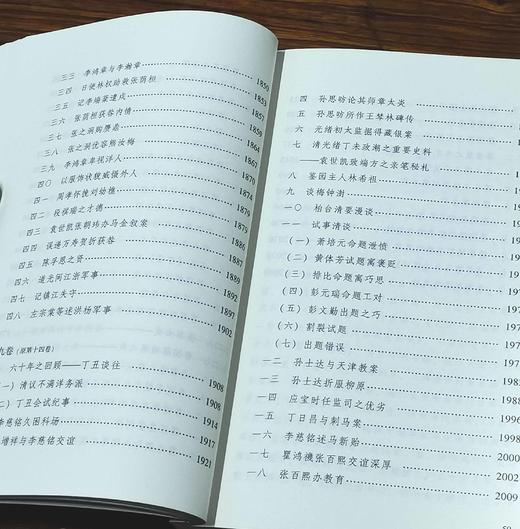 三三 李鸿章与李瀚章 1850
三四 日使林权助救张荫桓 1851
三五 记李端棻遣戍 1853
三六 张荫桓获咎内情 1857
三七 张之洞购赝鼎 1859
三八 张之洞优容熙汝梅 1864
三九 李鸿章卑视洋人 1867
四〇 以服饰状貌威慑外人 1870
四一 周孝怀挽刘幼樵 1874
四二 段祺瑞之才德 1876
四三 袁世凯张朝玮办马金叙案 1877
四四 误递万寿贺折获咎 1886
四五 陈孚恩之贤 1887
四六 道光间江浙军事 1889
四七 记镇江失守 1892
四八 左宗棠等述洪杨军事 1897
1902
九卷(原第十四卷)
六十年之回顾——丁丑谈往 1908
(一)清议不满洋务派 1908
(二)丁丑会试纪事 1914
李慈铭久困科场 1917
增祥与李慈铭交谊 1921
四 孙思昉论其师章太炎
五 孙思昉所作王琴林碑传
六 元绪初太监掘得藏银案
七 清光绪丁未政潮之重要史料
——袁世凯致端方之亲笔秘札
八 鉴园主人林希祖
九 谈梅钟澍
一〇 柏台清要漫谈
一一 试事清谈
(一)萧培元命题泄愤
(二)黄体芳试题寓褒贬
(三)措比命题寓巧思
(四)彭元瑞命题工对
(五)彭文勤出题之巧
(六)割裂试题
(七)出题错误
一二 孙士达与天津教案
一三 孙士达折服柳原
一四 应宝时任监司之优劣
一五 丁日昌与刺马案
一六 李慈铭述马新贻 2000
一七 瞿鸿禨张百熙交谊深厚 2002
一八 张百熙办教育 2009